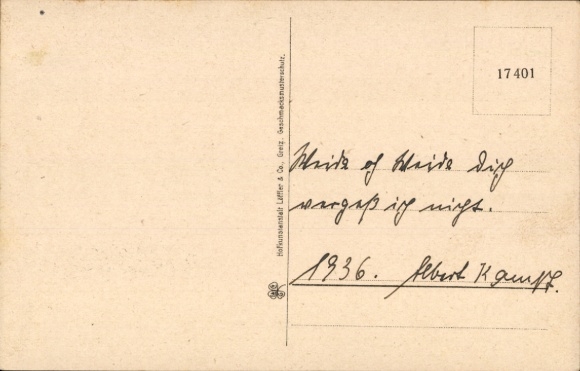 17401
Hofkunstanstalt Löffler & Co., Greiz. Geschmacksmusterschutz.
Dich
vergeß ich nicht.
1936. Albert